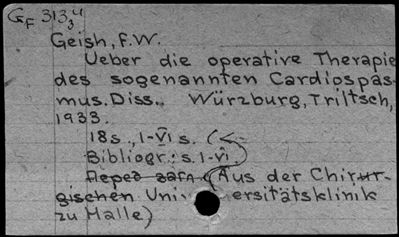 GF 313,4
3
Geish, F.W.
Ueber die operative Therapie
des sogenannten Cardiospas-
mus. Diss. Würzburg, Triltsch,
1933.
18 s., I-VI s. (
Bibliogr.: s. I-VI.
Перед загл. (Aus der Chirur-
gischen Universitätsklinik
zu Halle)